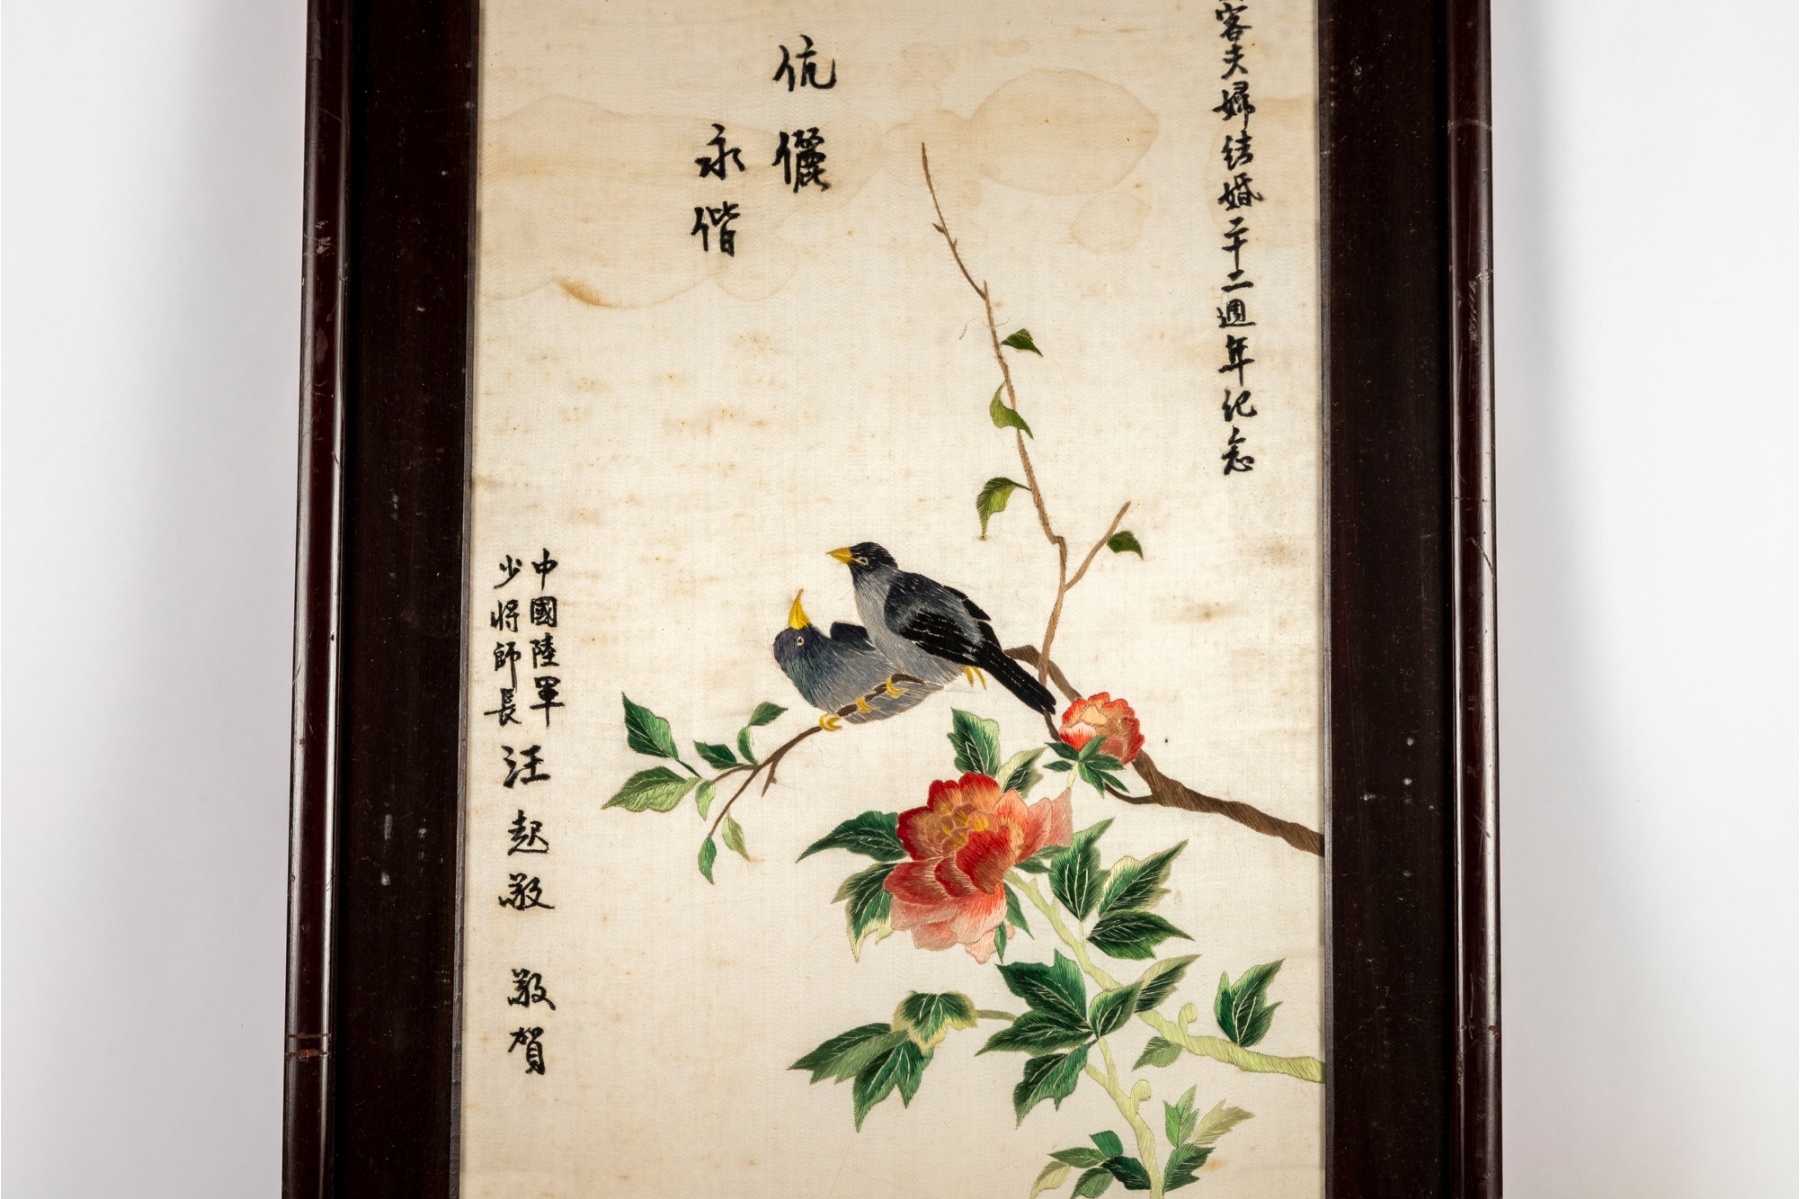 客夫婦結婚二十二週年紀念
伉儷
永偕
中國陸軍
少將師長
汪起敬 敬賀